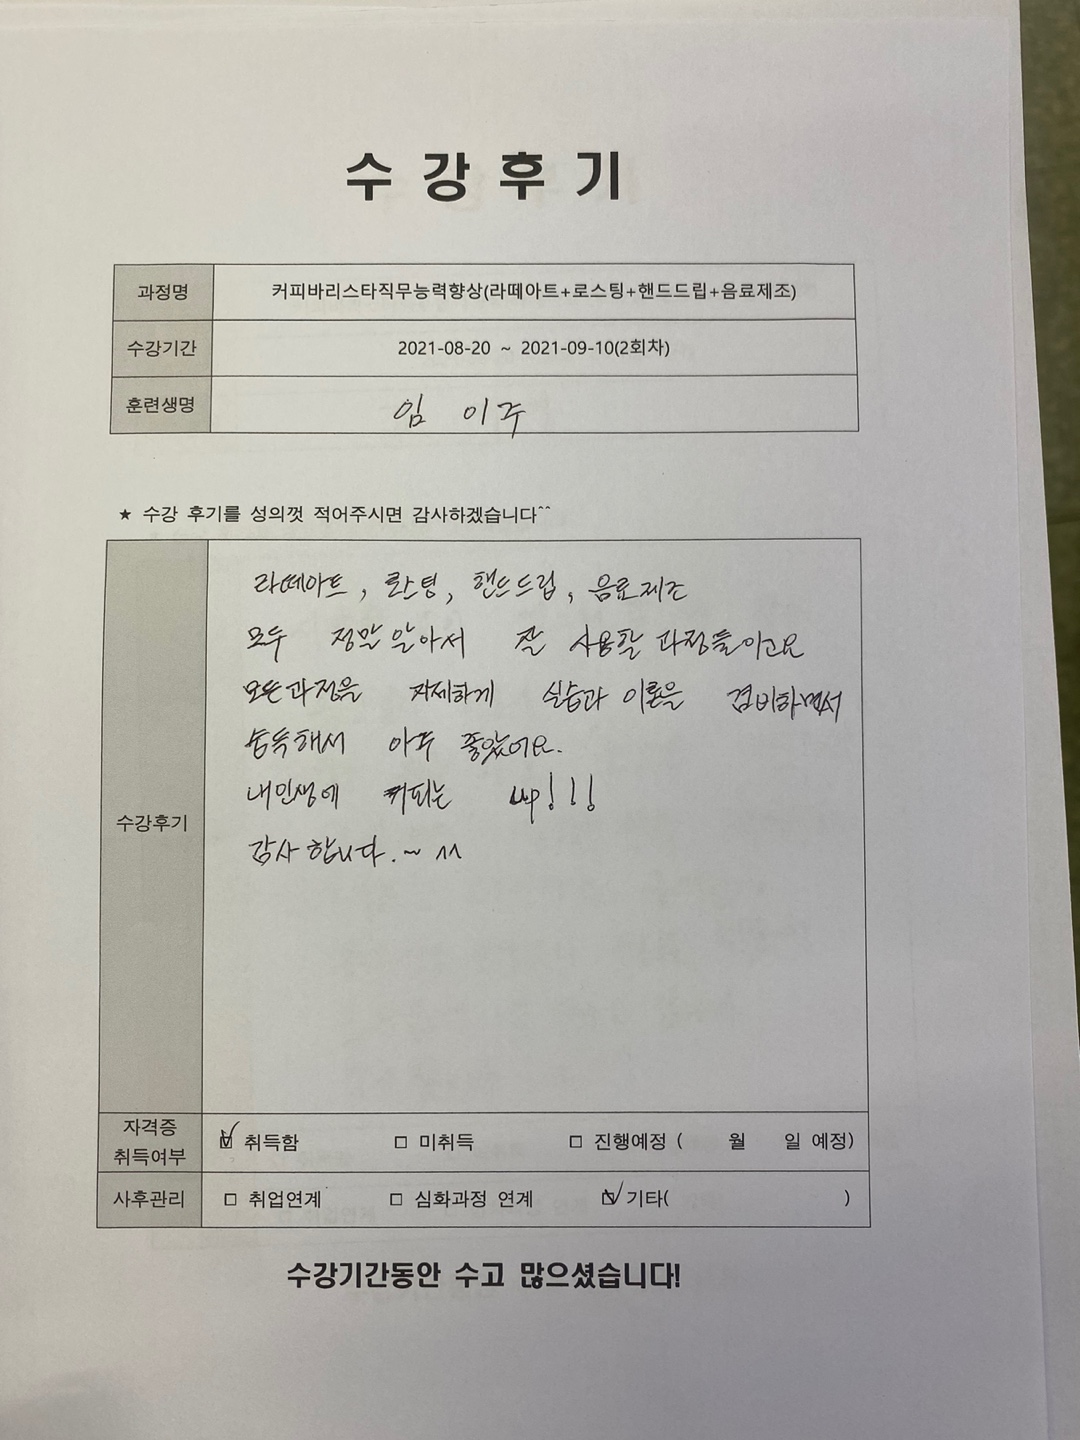 수강후기
과정명 커피바리스타직무능력향상(라떼아트+로스팅+핸드드립+음료제조)
수강기간 2021-08-20 ~ 2021-09-10(2회차)
훈련생명 임 이주
★ 수강 후기를 성의껏 적어주시면 감사하겠습니다^^
라떼아트, 로스팅, 핸드드립, 음료제조
모두 정말 알아서 잘 사용할 과정들이고요
모든과정을 자세하게 실습과 이론을 겸비하면서
습득해서 아주 좋았어요.
내인생에 커피는 up!!!
감사합니다.~ ^^
수강후기
자격증 취득여부 ☑ 취득함 □ 미취득 □ 진행예정 ( 월 일 예정)
사후관리 □ 취업연계 □ 심화과정 연계 ☑ 기타( )
수강기간동안 수고 많으셨습니다!